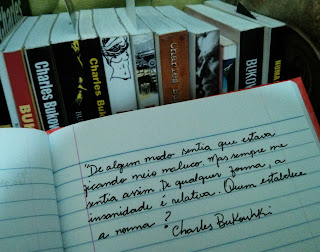 Charles Bukow
Charles
Charles Bu
BUKO
"De algum modo sentia que estava
ficando meio maluco. Mas sempre me
sentia assim. De qualquer forma, a
insanidade é relativa. Quem estabelece
a norma?
"Charles Bukowski